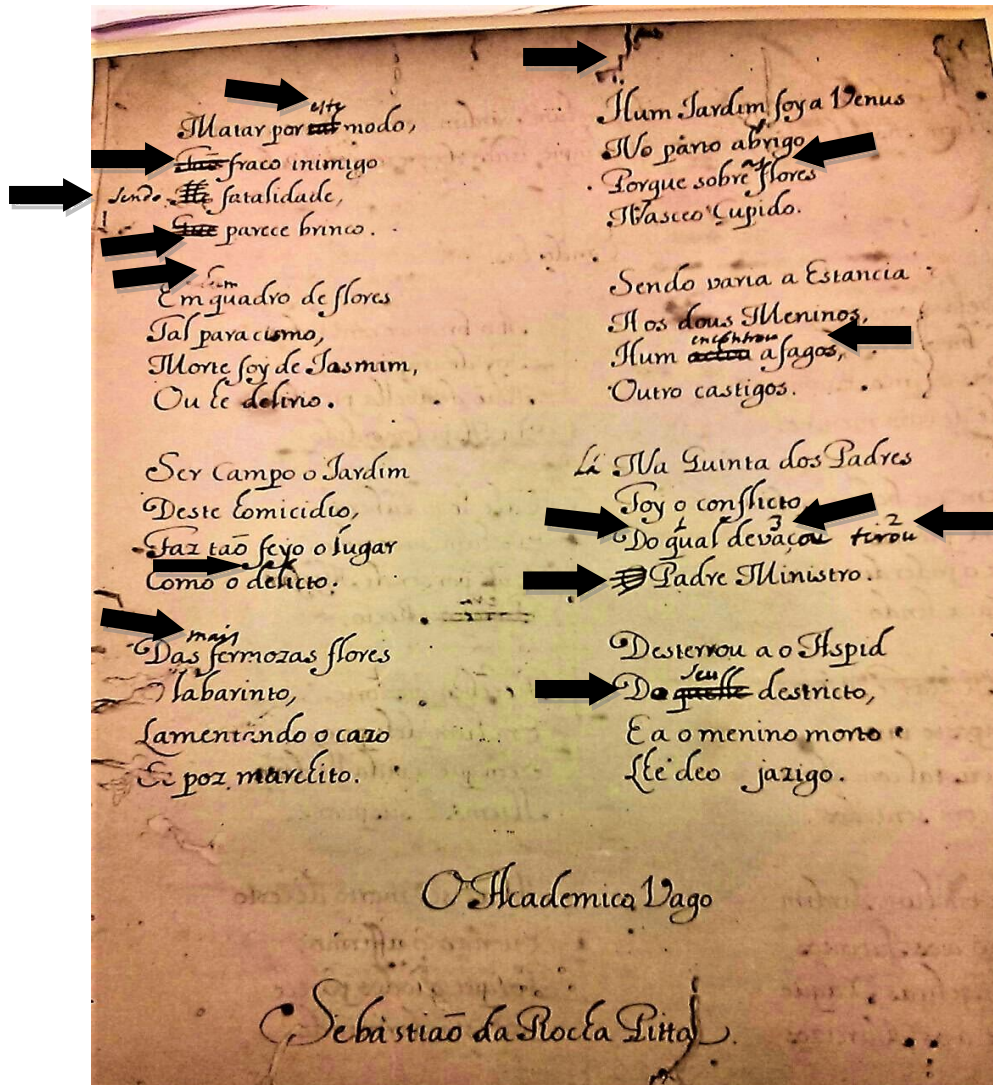 Matar por tal este modo,
Taõ fraco inimigo
sendo fatalidade,
Que parece brinco.
Em quadro de flores
Tal paracismo,
Morte foy de Jasmim,
Ou he delirio.
Ser Campo o Jardim
Deste homicidio,
Faz taõ feyo o lugar
Como o delicto.
mais
Das fermozas flores
labarinto,
Lamentando o cazo
Se poz marchito.
Hum Jardim foy a Venus
No parto abrigo
Porque sobre flores
Nasceo Cupido.
Sendo varia a Estancia
Aos dous Meninos,
encontrou
Hum achou afagos,
Outro castigos.
Lá Na Quinta dos Padres
Foy o conflicto,
1 3 2
Do qual devaçou tirou
Padre Ministro.
Desterrou ao Aspid
seu
Do quelle destricto,
E a o menino morto
Lhe deo jazigo.
O Academico Vago
Sebastiaõ da Rocha Pitta.